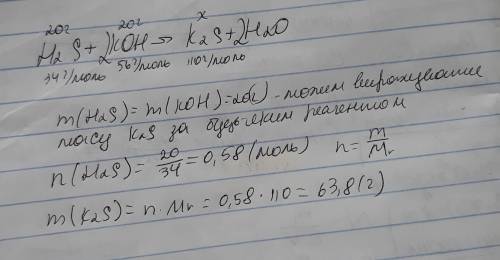 20г 20г x
H₂S + 2KOH => K₂S + 2H₂O
34г/моль 56г/моль 110г/моль
m(H₂S) = m(KOH) = 20(г) - можем вирахувати
масу K₂S за будь-яким реагентом
n(H₂S) = 20/34 = 0,58 (моль) n = m/Mr
m(K₂S) = n · Mr = 0,58 · 110 = 63,8 (г)